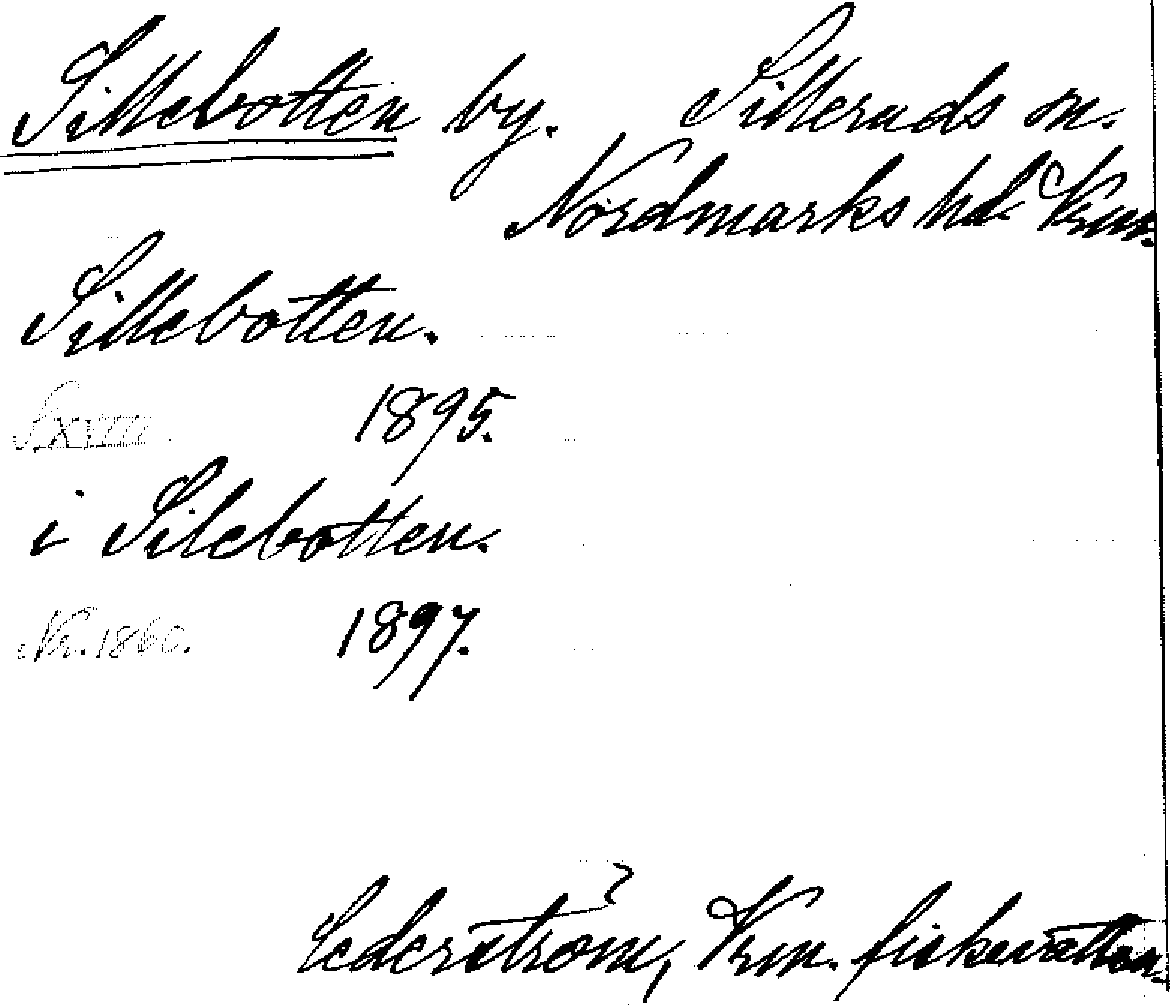 Sillebotten by. Silleruds sn.
Nordmarks hd. Vrm.
Sillebotten.
S. XVIII. 1895.
i Silebotten.
Nr. 1860. 1897.
Cederström, Vrm. fiskevatten.